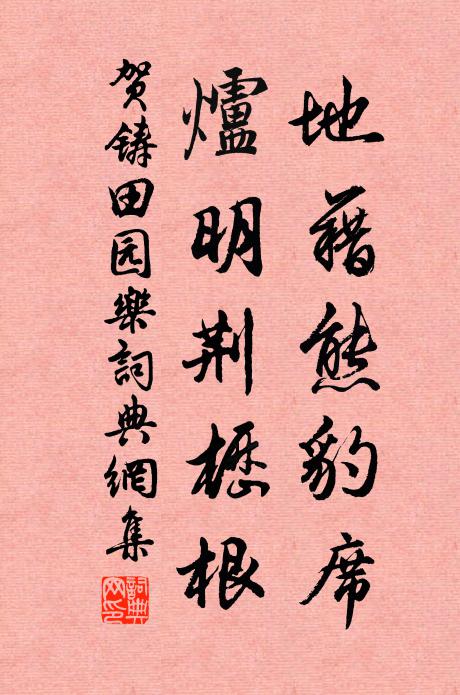 地藉熊豹席
爐明荆櫪根
贺鑄田园樂詞典網集
詞典網印